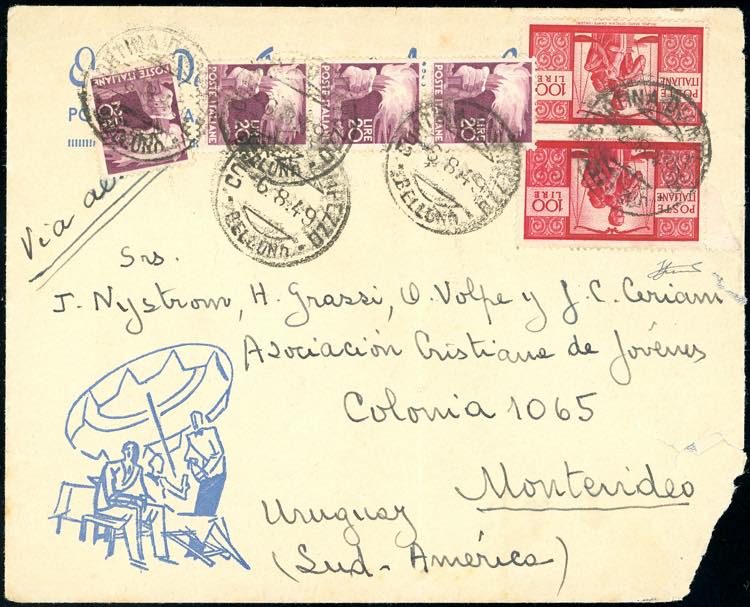 POSTE ITALIANE LIRE 20
POSTE ITALIANE LIRE 20
POSTE ITALIANE LIRE 20
POSTE ITALIANE LIRE 20
POSTE ITALIANE 100 LIRE
POSTE ITALIANE 100 LIRE
6.8.49
BELLUNO
BELLUNO
Via
Srs.
J. Nystrom, H. Grassi, O. Volpe y J. C. Ceriani
Asociación Cristiana de Jóvenes
Colonia 1065
Montevideo
Uruguay
(Sud-América)